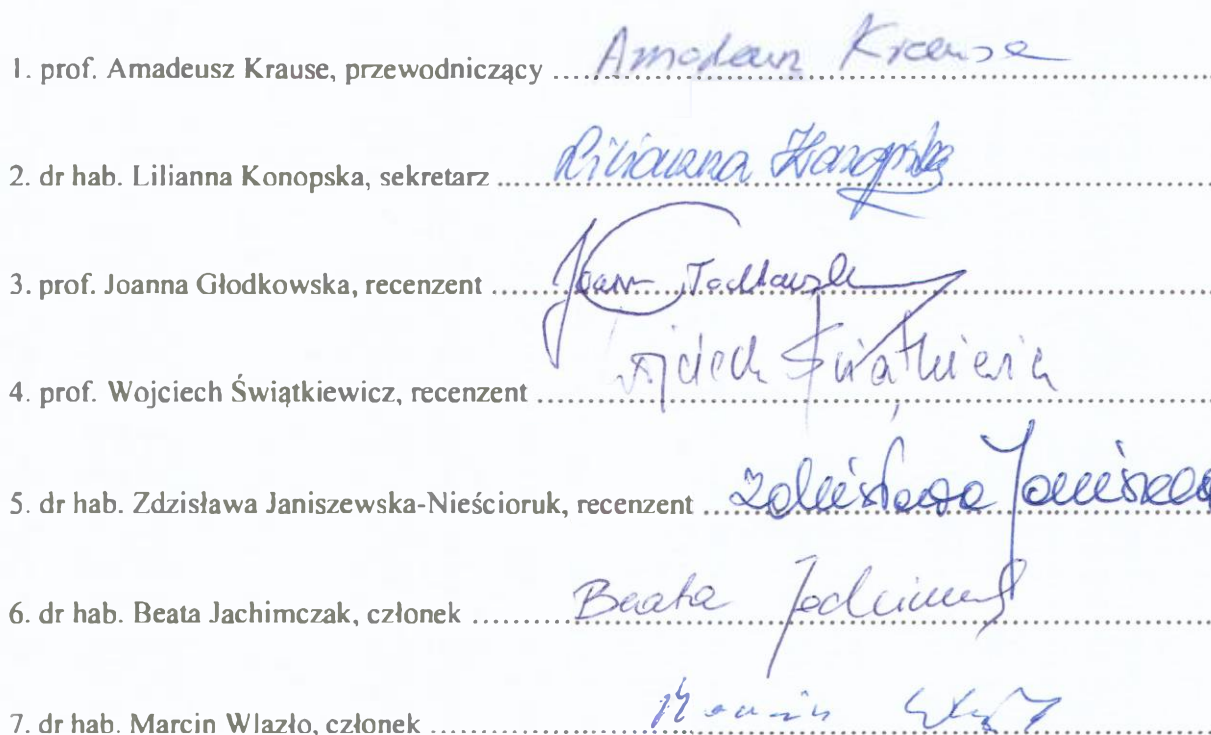 1. prof. Amadeusz Krause, przewodniczący ..... Amadeusz Krause
2. dr hab. Lilianna Konopska, sekretarz ..... Lilianna Konopska
3. prof. Joanna Głodkowska, recenzent ..... Joan
4. prof. Wojciech Świątkiewicz, recenzent ..... Świątkiewicz
5. dr hab. Zdzisława Janiszewska-Nieścioruk, recenzent ..... Zdzisława
6. dr hab. Beata Jachimczak, członek ..... Beata
7. dr hab. Marcin Wlazło, członek ..... Marcin